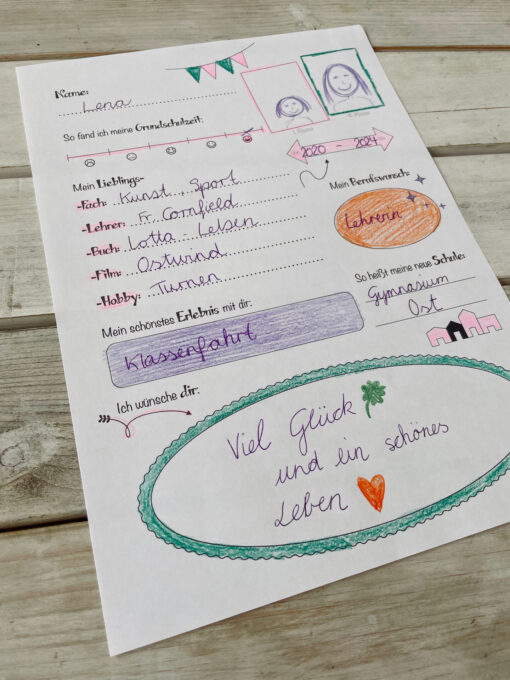 Name:
Lena
So fand ich meine Grundschulzeit:
1. Klasse
4. Klasse
2020 - 2024
Mein Lieblings-
-Fach: Kunst, Sport
-Lehrer: Fr. Cornfield
-Buch: Lotta-Leben
-Film: Ostwind
-Hobby: Turnen
Mein Berufswunsch:
Lehrerin
So heißt meine neue Schule:
Gymnasium
Ost
Mein schönstes Erlebnis mit dir:
Klassenfahrt
Ich wünsche dir:
Viel Glück
und ein schönes
Leben